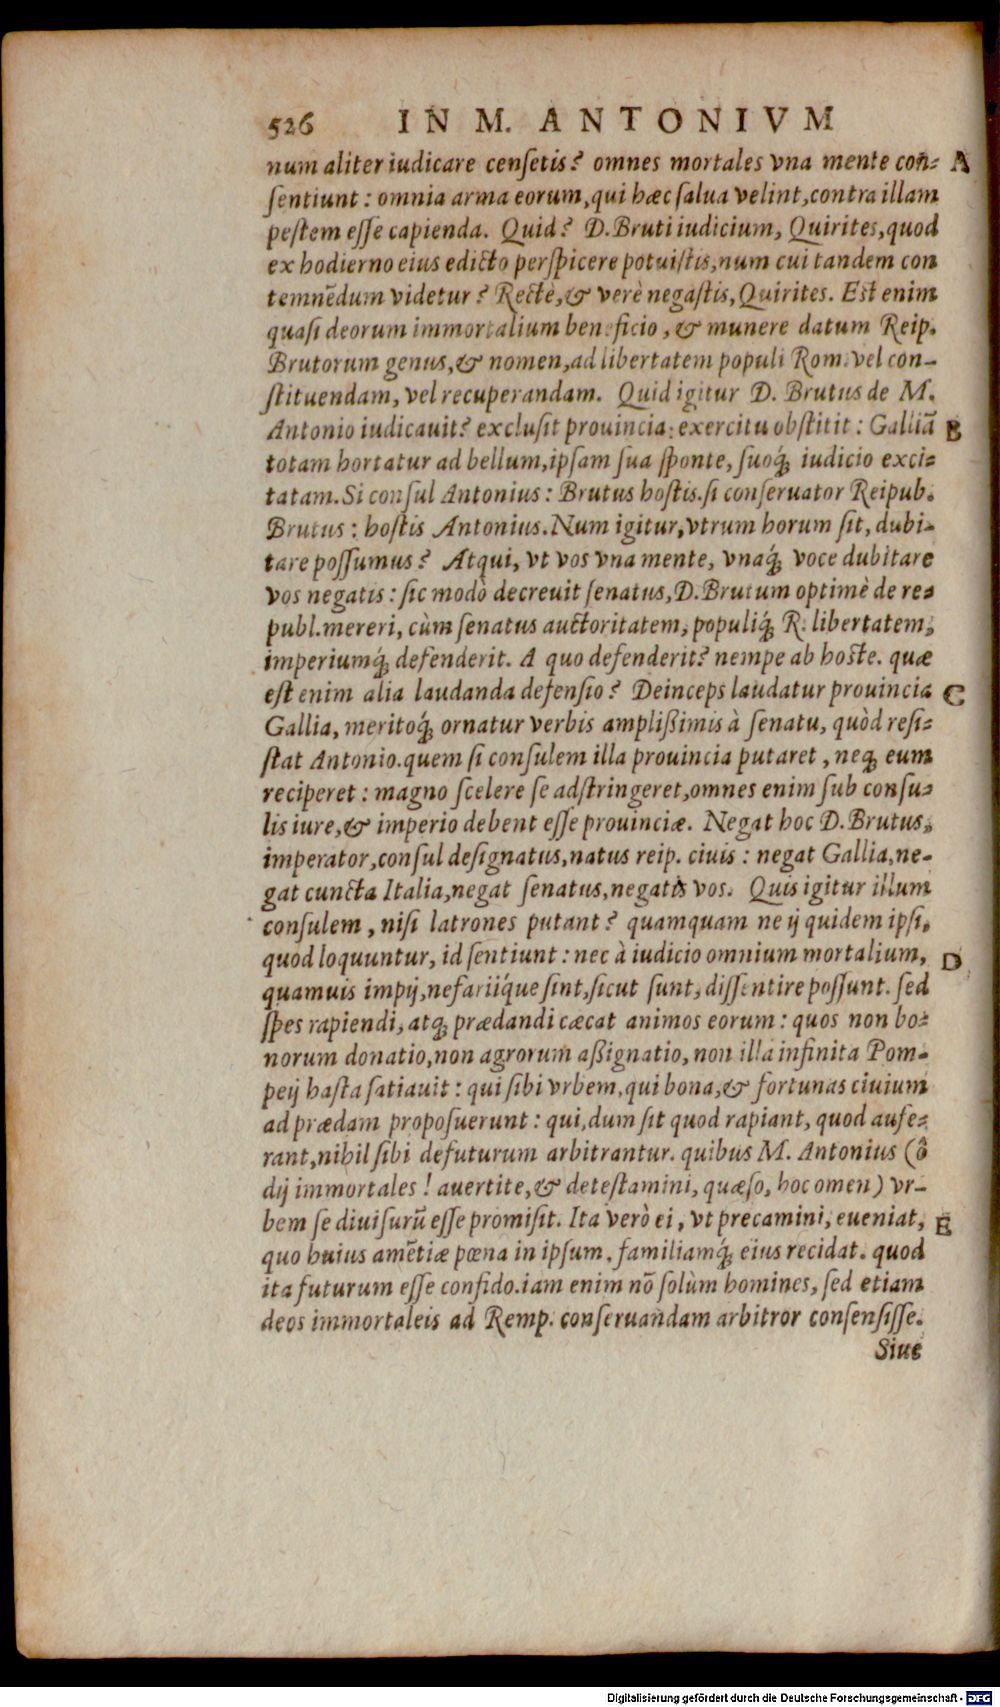 526 IN M. ANTONIVM
num aliter iudicare censetis? omnes mortales vna mente con- A
sentiunt: omnia arma eorum, qui hæc salua velint, contra illam
pestem esse capienda. Quid? D. Bruti iudicium, Quirites, quod
ex hodierno eius edicto perspicere potuistis, num cui tandem con
temnēdum videtur? Rectè, & verè negastis, Quirites. Est enim
quasi deorum immortalium beneficio, & munere datum Reip.
Brutorum genus, & nomen, ad libertatem populi Rom. vel con-
stituendam, vel recuperandam. Quid igitur D. Brutus de M.
Antonio iudicauit? exclusit prouincia: exercitu obstitit: Galliā B
totam hortatur ad bellum, ipsam sua sponte, suoq́; iudicio exci-
tatam. Si consul Antonius: Brutus hostis. si conseruator Reipub.
Brutus: hostis Antonius. Num igitur, vtrum horum sit, dubi-
tare possumus? Atqui, vt vos vna mente, vnaq́; voce dubitare
vos negatis: sic modò decreuit senatus, D. Brutum optimè de re-
publ. mereri, cùm senatus auctoritatem, populiq́; R. libertatem,
imperiumq́; defenderit. A quo defenderit? nempe ab hoste. quæ
est enim alia laudanda defensio? Deinceps laudatur prouincia C
Gallia, meritoq́; ornatur verbis amplißimis à senatu, quòd resi-
stat Antonio. quem si consulem illa prouincia putaret, neq; eum
reciperet: magno scelere se adstringeret, omnes enim sub consu-
lis iure, & imperio debent esse prouinciæ. Negat hoc D. Brutus,
imperator, consul designatus, natus reip. ciuis: negat Gallia, ne-
gat cuncta Italia, negat senatus, negatis vos. Quis igitur illum
consulem, nisi latrones putant? quamquam ne ij quidem ipsi,
quod loquuntur, id sentiunt: nec à iudicio omnium mortalium, D
quamuis impij, nefariíque sint, sicut sunt, dissentire possunt. sed
spes rapiendi, atq; prædandi cæcat animos eorum: quos non bo-
norum donatio, non agrorum aßignatio, non illa infinita Pom-
peij hasta satiauit: qui sibi vrbem, qui bona, & fortunas ciuium
ad prædam proposuerunt: qui, dum sit quod rapiant, quod aufe-
rant, nihil sibi defuturum arbitrantur. quibus M. Antonius (ô
dij immortales! auertite, & detestamini, quæso, hoc omen) vr-
bem se diuisurū esse promisit. Ita verò ei, vt precamini, eueniat, E
quo huius amētiæ pœna in ipsum, familiamq́; eius recidat. quod
ita futurum esse confido. iam enim nō solùm homines, sed etiam
deos immortaleis ad Remp. conseruandam arbitror consensisse.
Siue
Digitalisierung gefördert durch die Deutsche Forschungsgemeinschaft - DFG